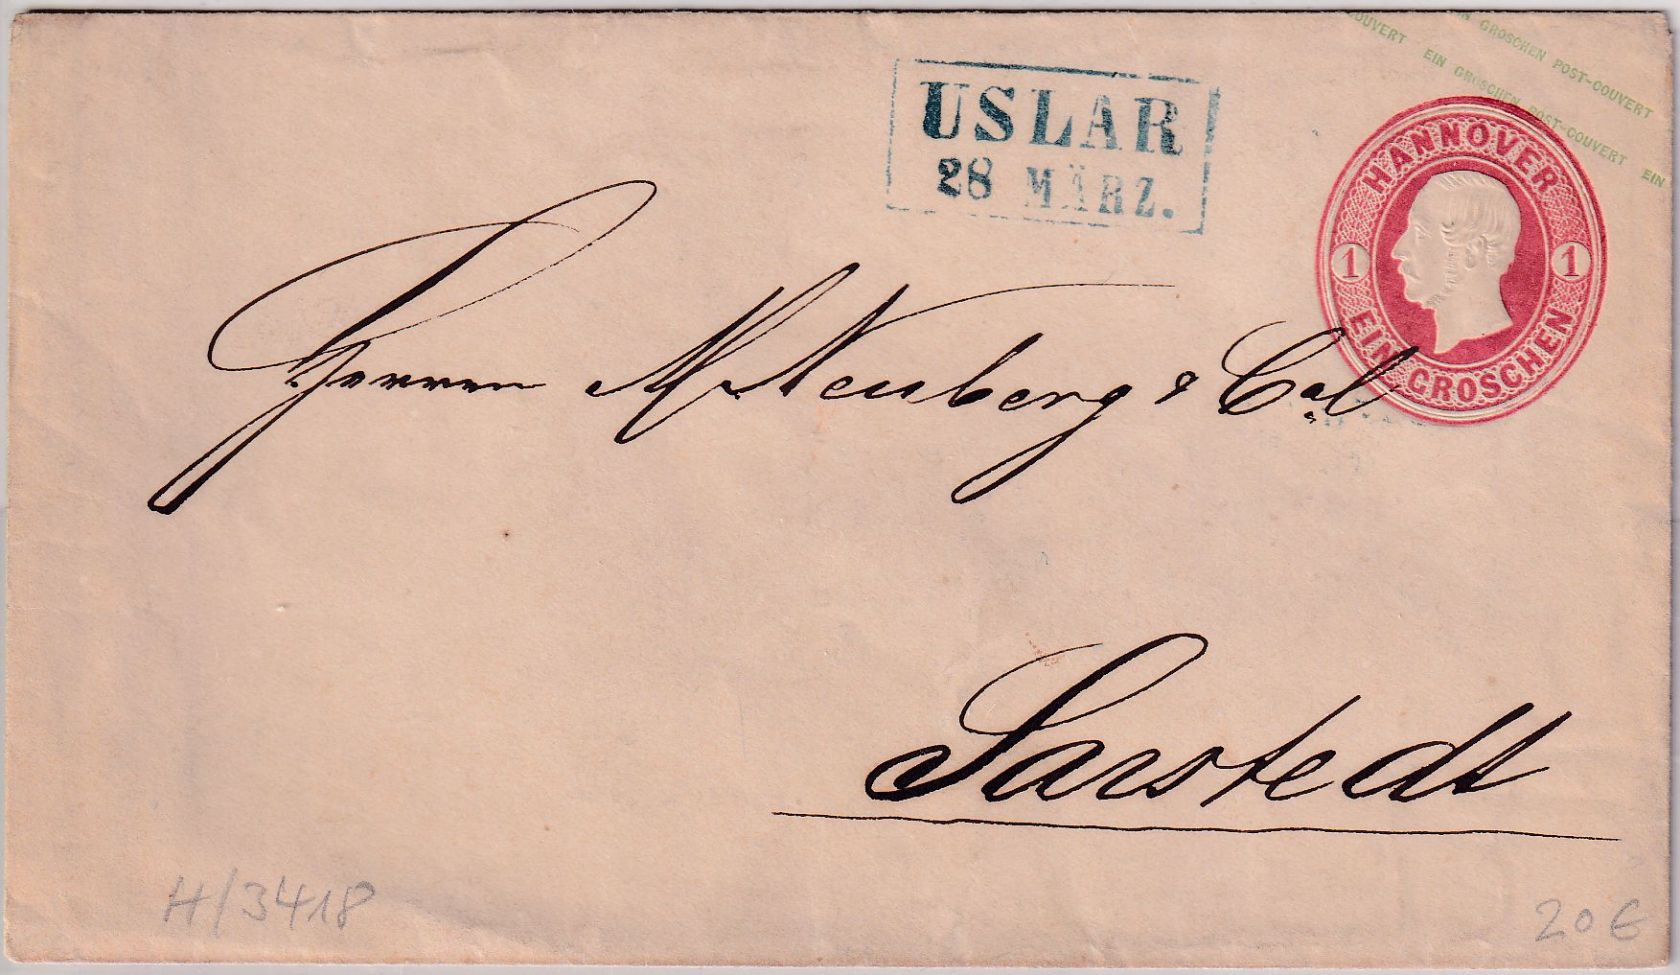 COUVERT EIN GROSCHEN POST-COUVERT EIN
GROSCHEN POST-COUVERT
USLAR
28 MÄRZ.
HANNOVER
1 1
EIN GROSCHEN
Herren M Neuberg & Co
Sarstedt
H/3418
20€